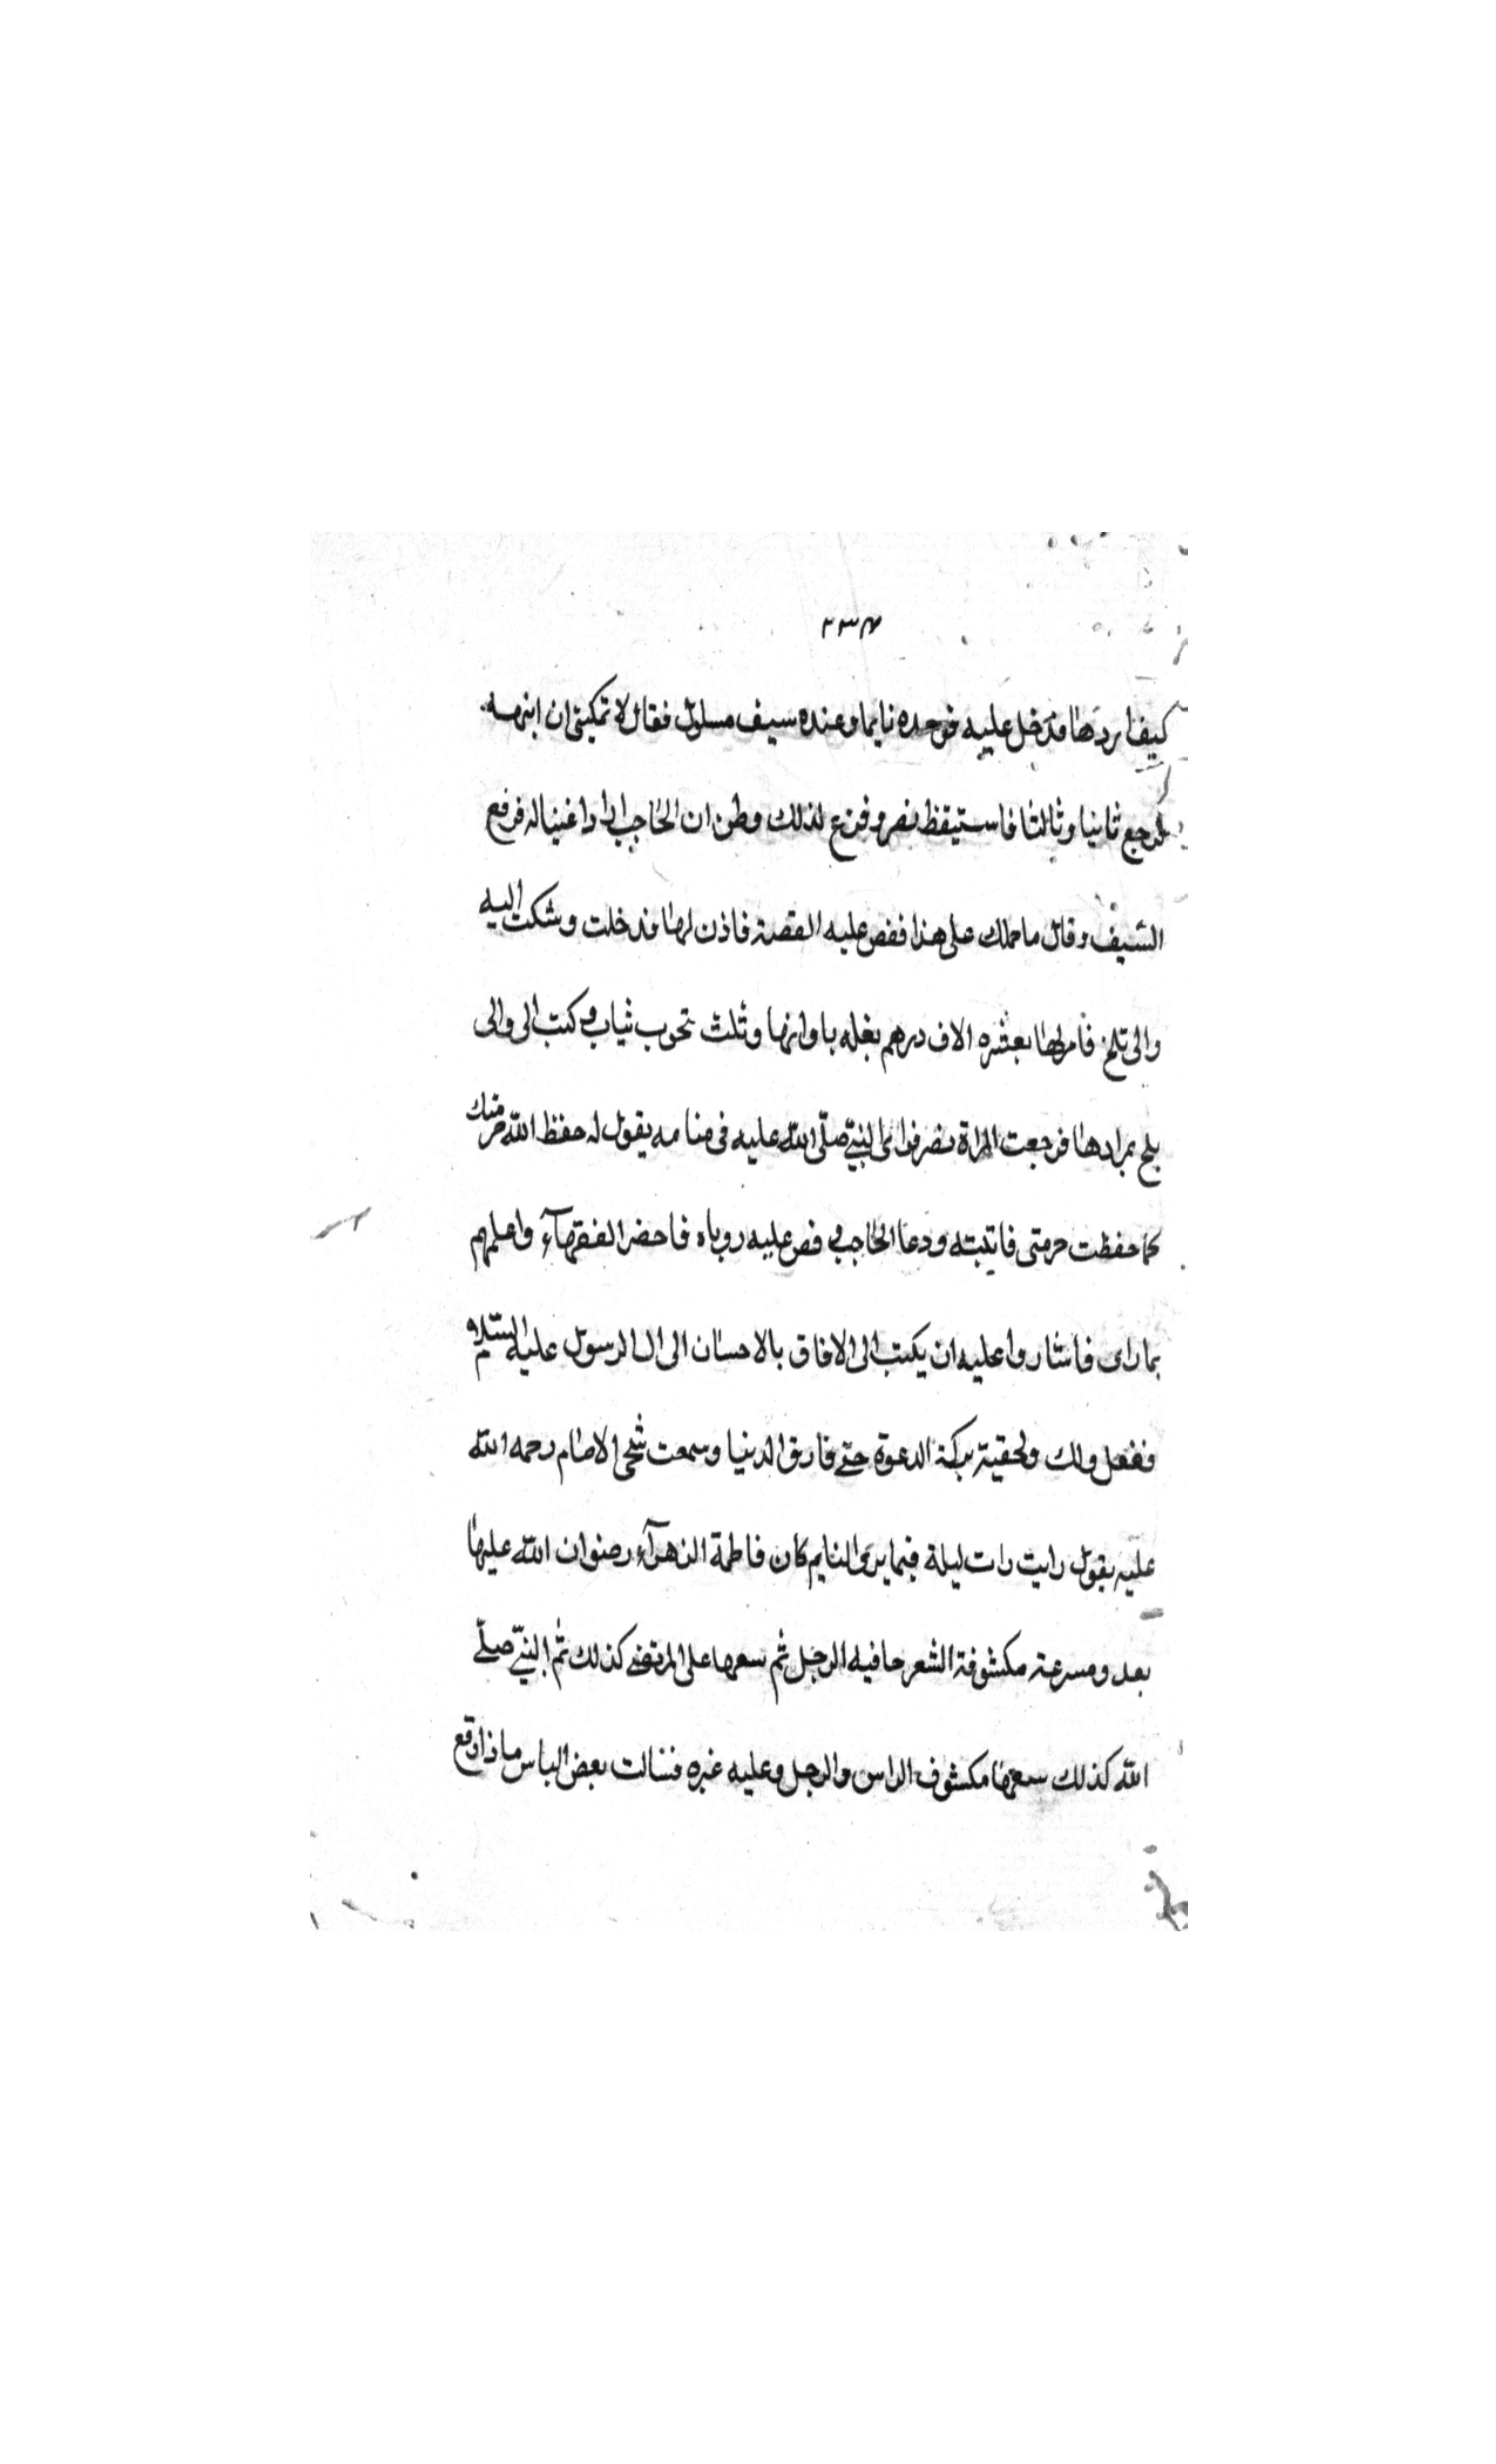 ٢٣٤
كيف اردها فدخل عليه فوجده نايما وعنده سيف مسلول فقال لا تمكيني ان ابنهه
فرجع ثانيا وثالثا فاستيقظ نصر وفزع لذلك وظن ان الحاجب اراد اغتياله فرفع
السيف وقال ما حملك على هذا فقص عليه القصة فاذن لها فدخلت وشكت اليه
والى بلخ فامر لها بعشره الاف درهم بغله باوانها وثلث تحوب ثياب وكتب الى والى
بلخ بمرادها فرجعت المراة نصر فراى النبي صلى الله عليه في منامه يقول له حفظ الله حرمتك
كما حفظت حرمتى فانتبه ودعا الحاجب وقص عليه روياه فاحضر الفقهآء واعلمهم
بما راى فاشاروا عليه ان يكتب الى الافاق بالاحسان الى ال الرسول عليه السلام
ففعل ذلك ولحقيته بركة الدعوة حتى فارق الدنيا وسمعت شيخى الامام رحمه الله
عليه يقول رايت ذات ليلة فيما يرى النايم كان فاطمة الزهرآء رضوان الله عليها
بعدو مسرعة مكشوفة الشعر حافيه الرجل ثم سعها على المرتضى كذلك ثم النبي صلى
الله كذلك سعها مكشوف الراس والرجل وعليه غبره فسالت بعض الناس ماذا وقع